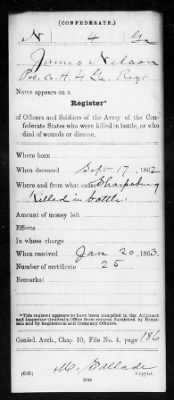 (CONFEDERATE.)
N 4 Ga
James Nelson
Pvt Co. A 4 Ga. Regt
Name appears on a
Register*
of Officers and Soldiers of the Army of the Con-
federate States who were killed in battle, or who
died of wounds or disease.
Where born
When deceased Sept 17, 1862
Where and from what cause Sharpsburg
Killed in battle
Amount of money left
Effects
In whose charge
When received Jan 20, 1863.
Number of certificate 25
Remarks:
*This register appears to have been compiled in the Adjutant
and Inspector General's Office from returns furnished by Hospi-
tals and by Regimental and Company Officers.
Confed. Arch., Chap. 10, File No. 4, page 186
(635)
Copyist.